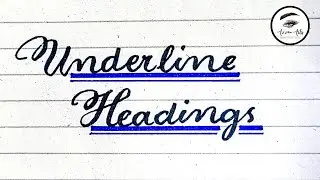 Underline
Headings